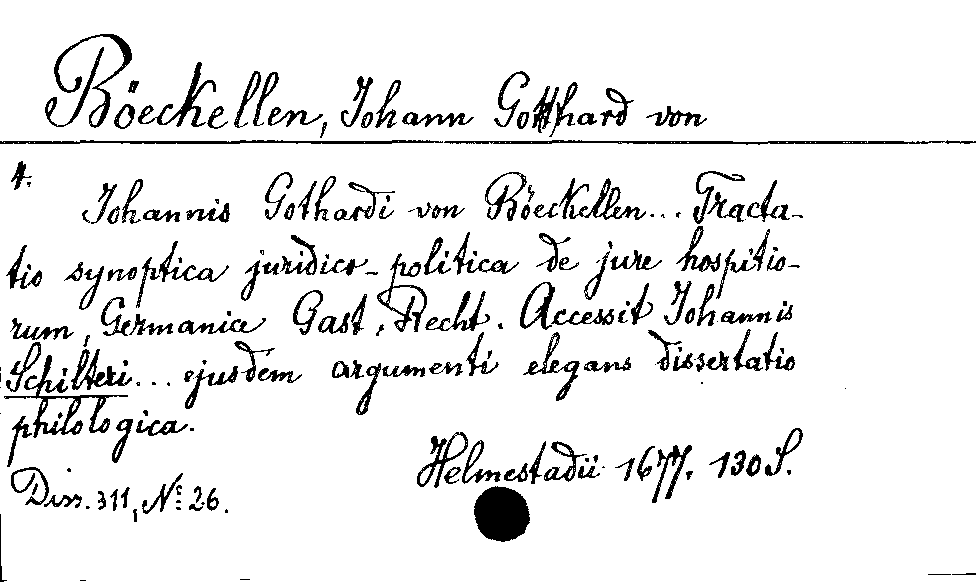 Böeckellen, Johann Gotthard von
4.
Johannis Gothardi von Böeckellen... Tracta-
tio synoptica juridico-politica de jure hospitio-
rum, Germanice Gast-Recht. Accessit Johannis
Schilteri... ejusdem argumenti elegans dissertatio
philologica.
Helmestadii 1677. 130 S.
Diss. 311, No: 26.